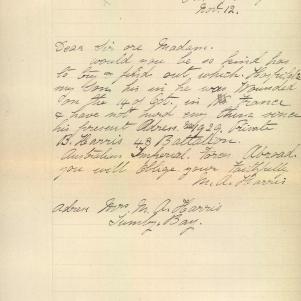 Nov. 12.
Dear Sir ore Madam.
would you be so kind has
to try & find out, which Hospital
my Son his in he was Wounded
on the 14 of Oct. in France
& have not heard any thing since
his present Adres. 2929. Private
B. Harris 48 Battalion
Australian Imperial Forces Abroad.
you will Oblige your faithfully
M. A. Harris
adres Mrs. M. A. Harris
Tumby. Bay.